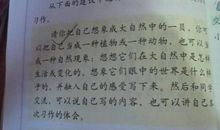 从下面的建议中
习作。
请你把自己想象成大自然中的一员，你可
以把自己当成一种植物或一种动物，也可以当
成一种自然现象；想想它们在大自然中是怎样
生活或变化的，想象它们眼中的世界是什么样
子的，并融入自己的感受写下来。然后和同学
交流，可以说自己写的内容，也可以讲自己多
次习作的体会。